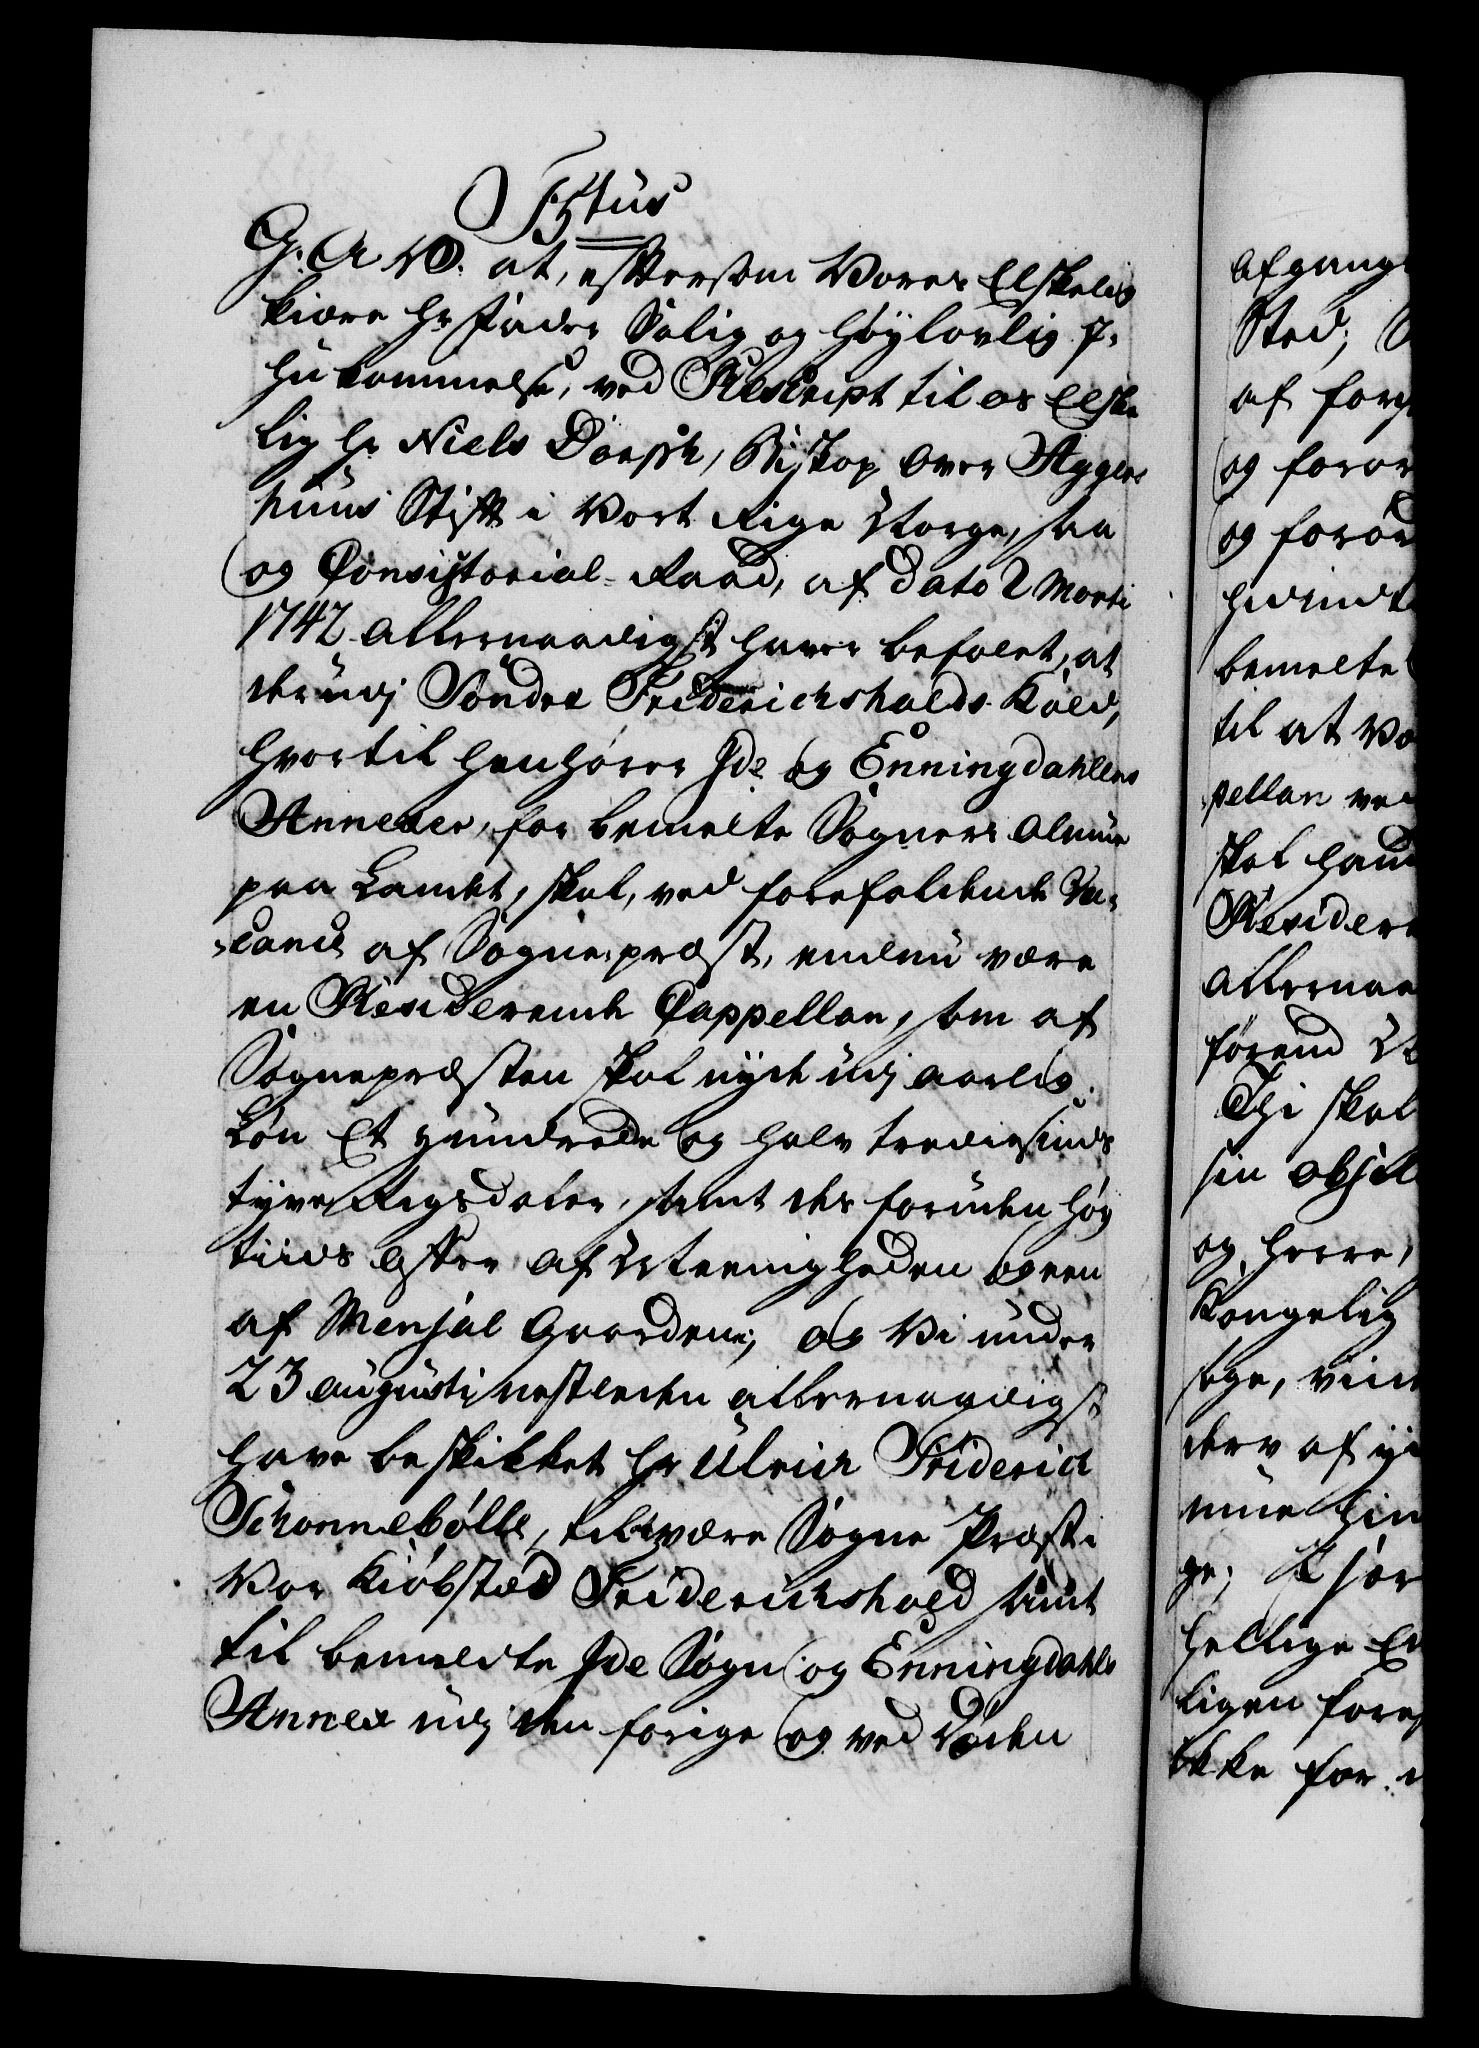 F 5tus
G. A. V. at, eftersom Vores Elskelig
kiære Hr Fader Salig og Høylovlig J-
hukommelse, ved Rescript til os Elske
lig Hr Niels Dorph, Biskop over Aggers
huus Stift i Vort Rige Norge, saa
og Consistorial-Raad, af dato 2 Marti
1742 allernaadigst haver befalet, at
der udj Søndre Friderichshalds Kald,
hvortil henhører Ide og Enningdahlens
Annexer, for bemelte Sogners Almue
paa Landet, skal, ved forefaldende Va-
cance af Sogne-præst, endnu være
en Residerende Cappellan, som af
Sognepræsten skal nyde udj aarlig
Løn Et hundrede og halv trediesinds
tyve Rigsdaler, samt des foruden Høy
tiids Offer af Meenigheden og een
af Mensal Gaardene; og Vi under
23 Augusti nestleden allernaadigst
have beskikket Hr Ulrich Friderich
Schonnebølle, til at være Sogne Præst i
Vor Kiøbsted Friderichshald samt
til bemeldte Ide Sogn og Enningdahls
Annex udj den forige og ved Døden
afgang
Sted;
af for
og foror
og foror
hidindt
bemelte
til at Væ
pellan ved
skal hand
Resider
allernaa
førend
Thi skal
sin objec
og Herre,
Kongelig
søge, viid
derv af y
mue hin
ge;
hellige Ev
ligen fore
ikke for